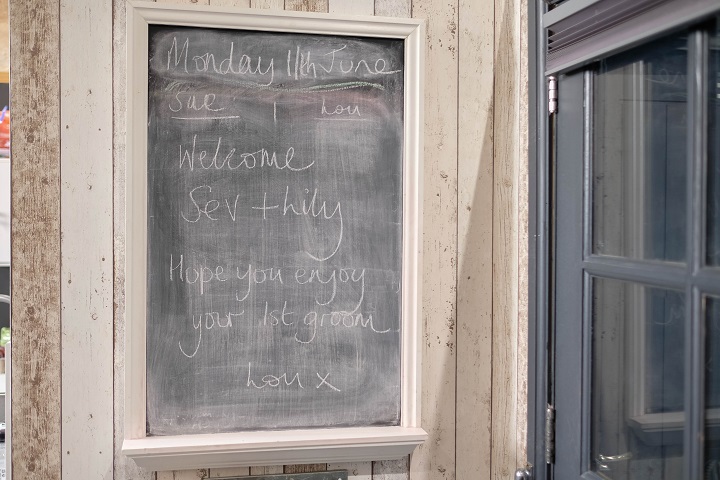 Monday 11th June
Sue | Lou
Welcome
Sev + Lily
Hope you enjoy
your 1st groom
Lou x